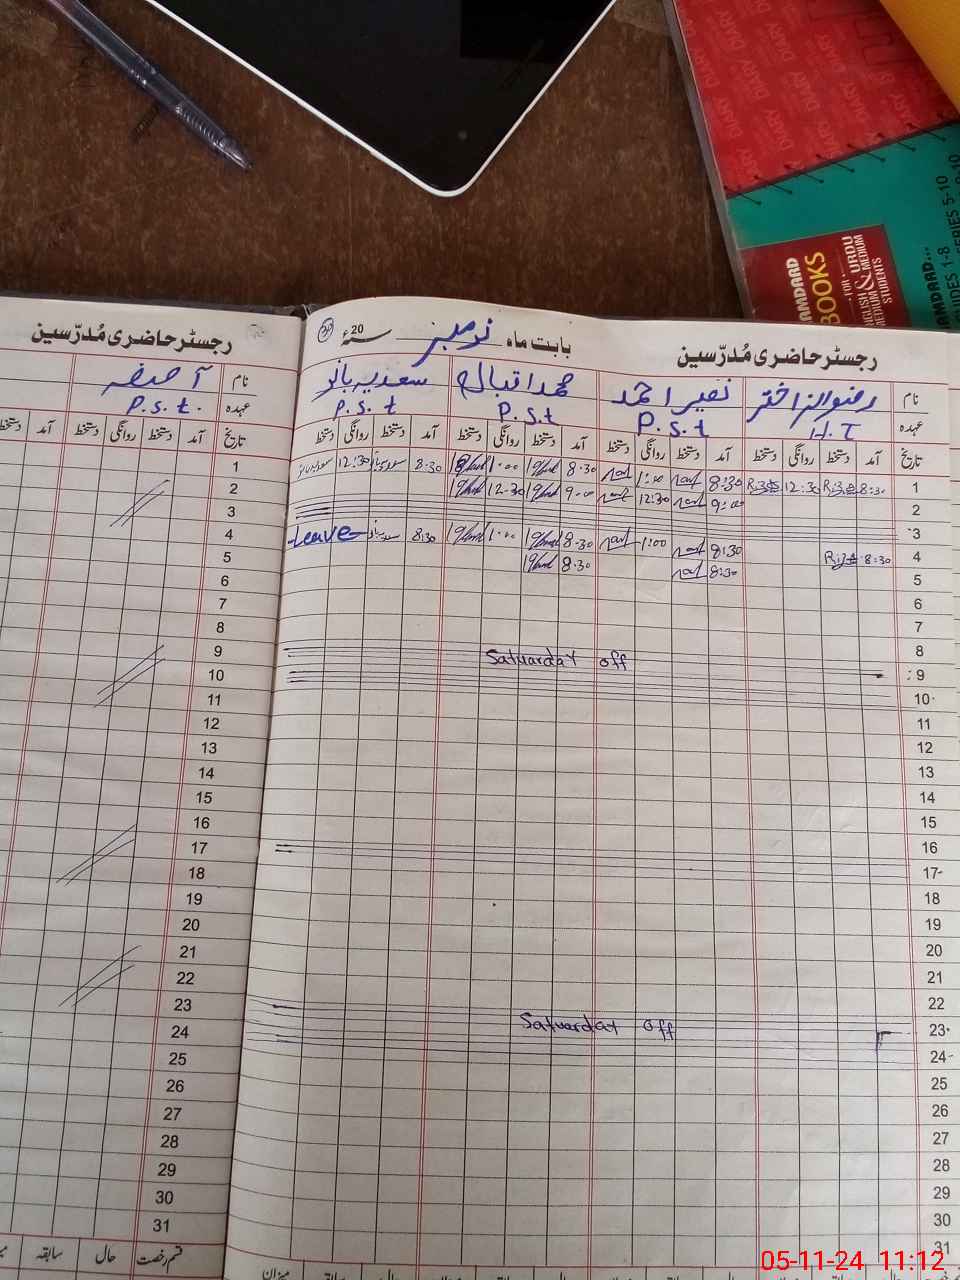 DIARY DIARY DIARY
HAMDARD
BOOKS
FOR
ENGLISH & URDU
MEDIUM MEDIUM
STUDENTS
SERIES 5-10
رجسٹر حاضری مُدرّسین
بابت ماہ نومبر 20 سنہء
نام رضوانہ اختر نصیر احمد محمد اقبال سعدیہ بانو
عہدہ H.T P.S.t P.S.t P.S.t
تاریخ آمد دستخط روانگی دستخط آمد دستخط روانگی دستخط آمد دستخط روانگی دستخط آمد دستخط روانگی دستخط
1 8:30 12:30 8:30 1:00 8.30 1.00 8:30 12:30
2 9:00 12:30 9.00 12.30
3
4 8:30 8:30 1:00 8.30 1.00 8:30 Leave
5 8:30 8.30
6
7
8
9 Satuarday off
10
11
12
13
14
15
16
17
18
19
20
21
22
23 Satuarday off
24
25
26
27
28
29
30
31
میزان
رجسٹر حاضری مُدرّسین
نام آصفہ
عہدہ P.S.t.
تاریخ آمد دستخط روانگی دستخط آمد دستخط
1
2
3
4
5
6
7
8
9
10
11
12
13
14
15
16
17
18
19
20
21
22
23
24
25
26
27
28
29
30
31
قسم رخصت حال سابقہ
05-11-24 11:12